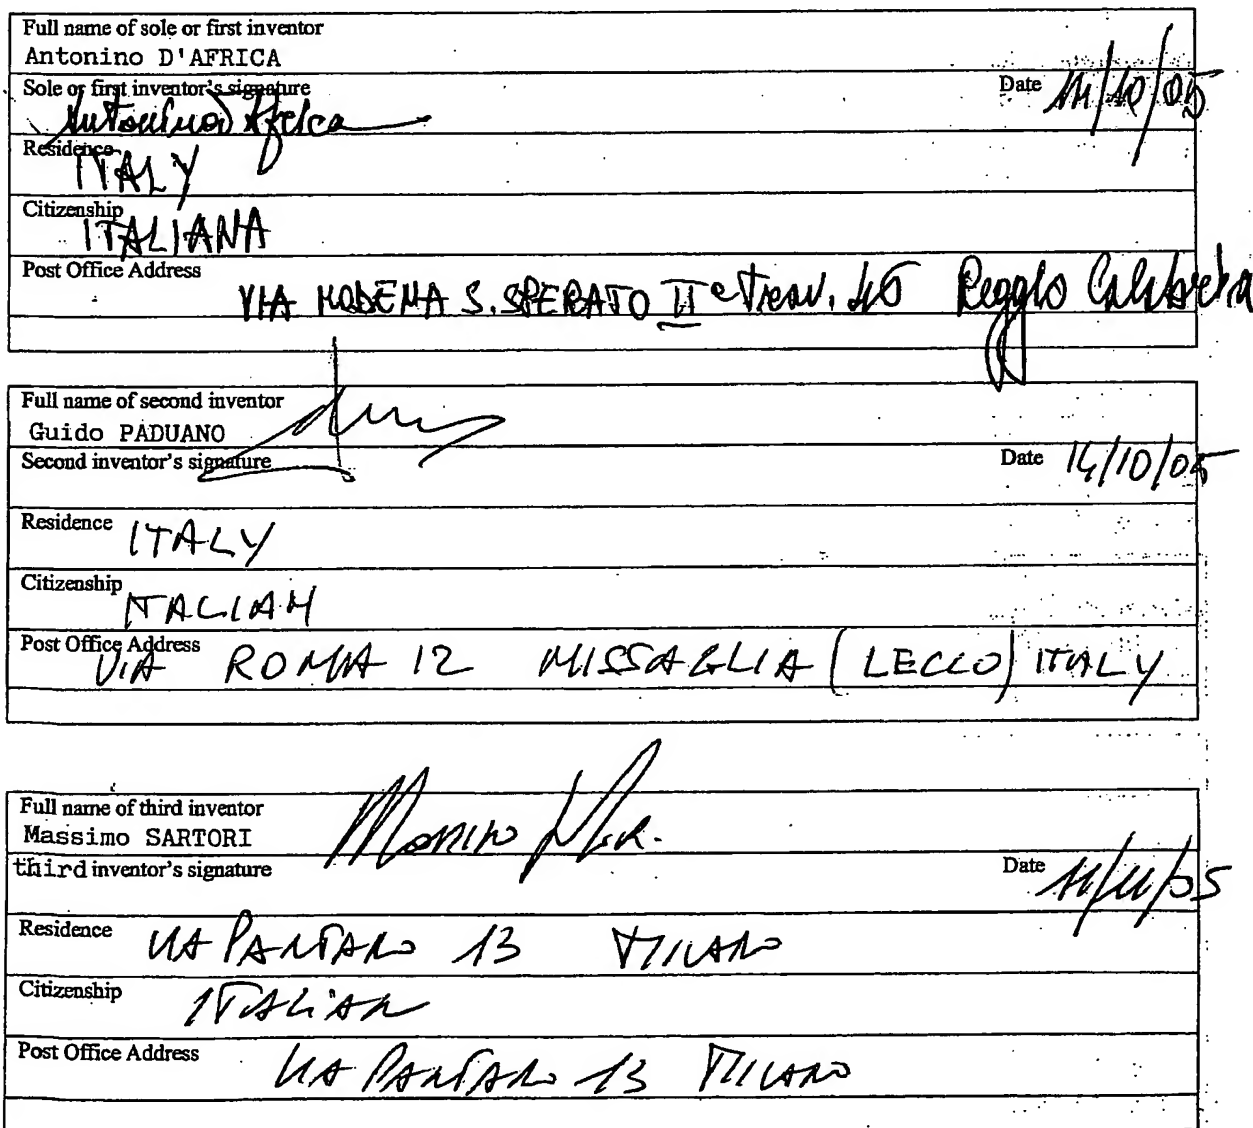 Full name of sole or first inventor
Antonino D'AFRICA
Sole or first inventor's signature Date
Antonino D'Africa
Residence
ITALY
Citizenship
ITALIANA
Post Office Address
VIA MODENA S. SPERATO II Reggio Calabria
Full name of second inventor
Guido PADUANO
Second inventor's signature Date 14/10/05
Residence ITALY
Citizenship
ITALIAN
Post Office Address
VIA ROMA 12 MISSAGLIA (LECCO) ITALY
Full name of third inventor
Massimo SARTORI
third inventor's signature Date
Residence VIA PANTANO 13 MILANO
Citizenship ITALIAN
Post Office Address VIA PANTANO 13 MILANO